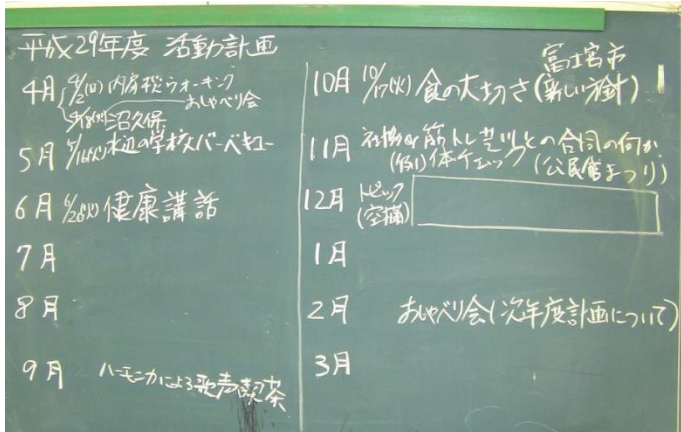 平成29年度 活動計画
4月 4/2(日) 内房桜ウォーキング
おしゃべり会
4/18(火) 沼久保
5月 5/16(火) 水辺の学校バーベキュー
6月 6/20(火) 健康講話
7月
8月
9月 ハーモニカによる歌声喫茶
富士宮市
10月 10/17(火) 食の大切さ(新しい方針)
11月 社協or筋トレ芝川との合同の何か
(例)体チェック (公民館まつり)
12月 トピック
(空欄)
1月
2月 おしゃべり会(次年度計画について)
3月